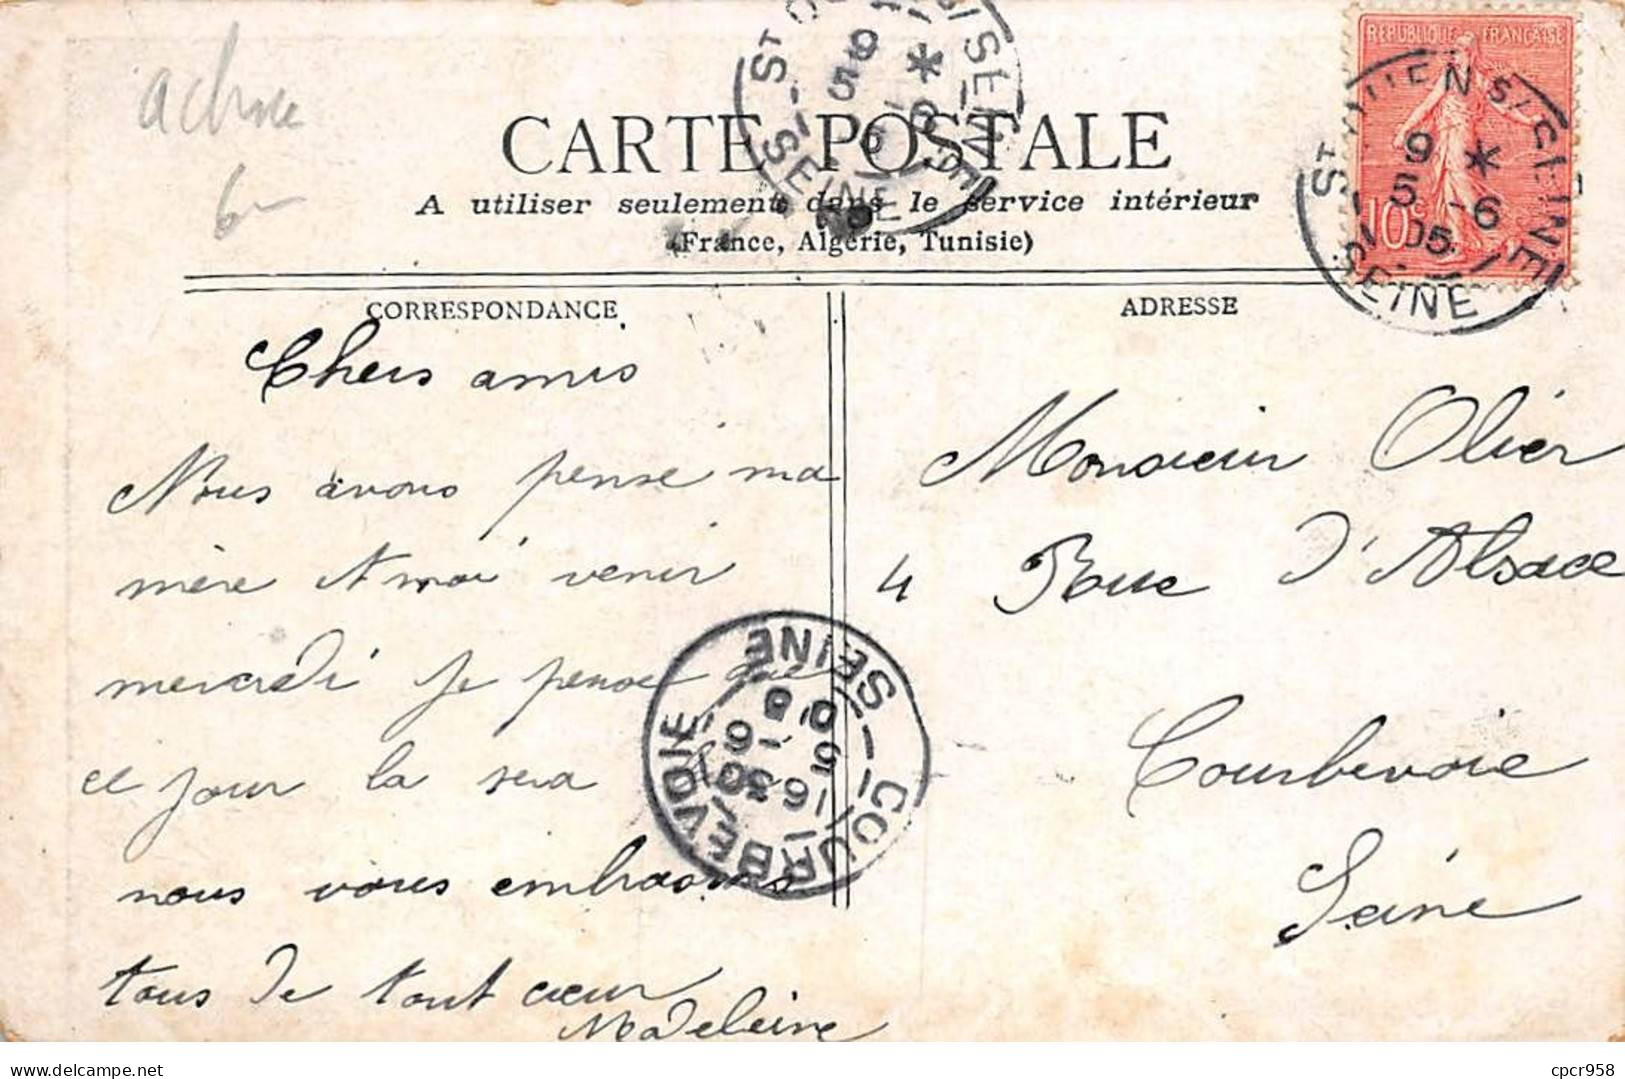 achne
6-
CARTE POSTALE
A utiliser seulement dans le service intérieur
(France, Algérie, Tunisie)
REPUBLIQUE FRANÇAISE
10c
ST OUEN S/SEINE
9 *
5 -6
05
SEINE
ST OUEN S/SEINE
9 *
5 -6
05
SEINE
CORRESPONDANCE
Chers amis
Nous avons pensé ma
mère et moi venir
mercredi je pense que
ce jour la sera
nous vous embrasons
tous de tout cœur
Madeleine
ADRESSE
Monsieur Olier
4 Rue d'Alsace
Courbevoie
Seine
COURBEVOIE
16 30
5 -6
05
SEINE
www.delcampe.net
cpcr958